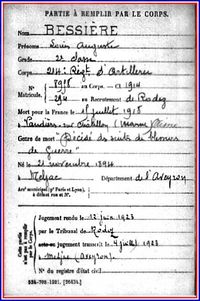 PARTIE À REMPLIR PAR LE CORPS.
Nom BESSIÈRE
Prénoms Louis Auguste
Grade 2e classe
Corps 211e Régt d'Artillerie
N° 8918 au Corps. — Cl. 1914
Matricule. au Recrutement de Rodez
Mort pour la France le juillet 1918
Genre de mort "Décédé des suites de blessures
de Guerre"
Né le 21 novembre 1894
à Meljac Département de l'Aveyron
Arr' municipal (pr Paris et Lyon),
à défaut rue et N°.
Jugement rendu le 12 juin 1923
par le Tribunal de Rodez
jugement transcrit le juillet 1923
à Meljac (Aveyron).
N° du registre d'état civil